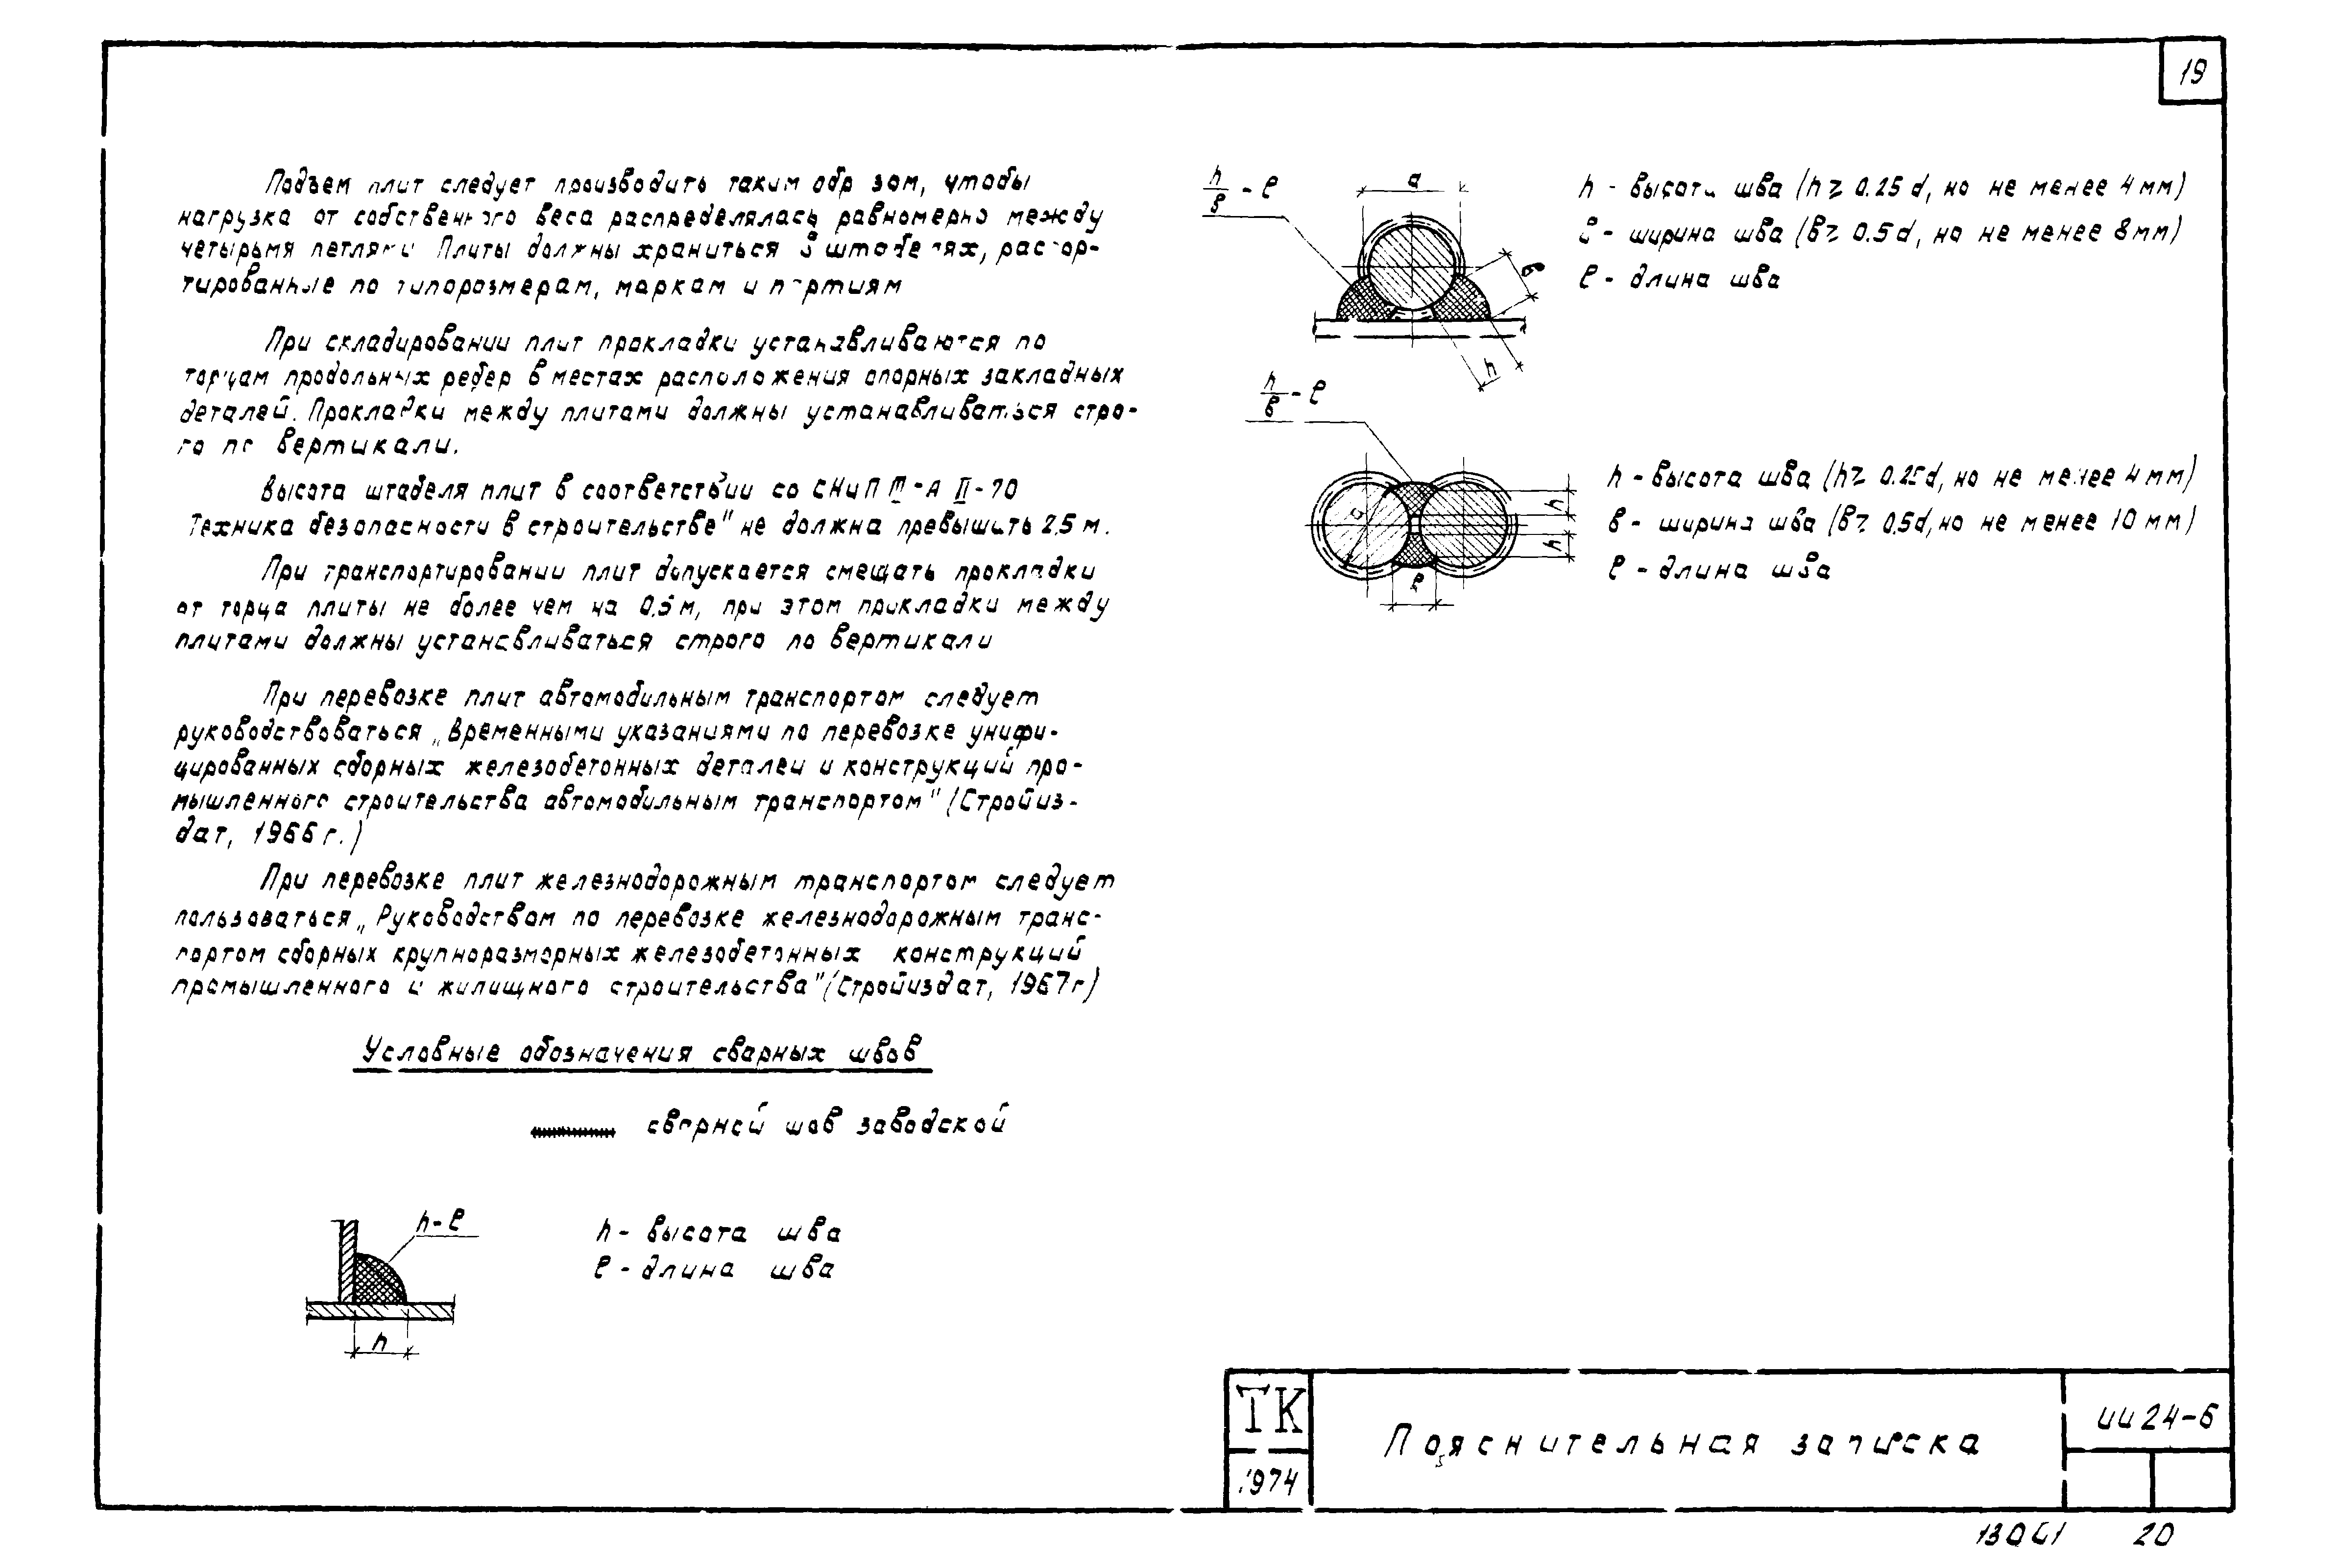 19
Подъем плит следует производить таким обр зом, чтобы
нагрузка от собственного веса распределялась равномерно между
четырьмя петлями Плиты должны храниться в штабелях, рассор-
тированные по типоразмерам, маркам и партиям
При складировании плит прокладки устанавливаются по
торцам продольных ребер в местах расположения опорных закладных
деталей. Прокладки между плитами должны устанавливаться стро-
го по вертикали.
Высота штабеля плит в соответствии со СНиП III-А II-70
Техника безопасности в строительстве" не должна превышать 2,5 м.
При транспортировании плит допускается смещать прокладки
от торца плиты не более чем на м, при этом прокладки между
плитами должны устанавливаться строго по вертикали
При перевозке плит автомобильным транспортом следует
руководствоваться „Временными указаниями по перевозке унифи-
цированных сборных железобетонных деталей и конструкций про-
мышленного строительства автомобильным транспортом" (Стройиз-
дат, 1966г.)
При перевозке плит железнодорожным транспортом следует
пользоваться „Руководством по перевозке железнодорожным транс-
портом сборных крупноразмерных железобетонных конструкций
промышленного и жилищного строительства" (Стройиздат, 1967г)
Условные обозначения сварных швов
сварной шов заводской
h-ℓ
h
h - высота шва
ℓ - длина шва
h/в - ℓ
d
в
h
h - высота шва (h ≥ 0.25 d, но не менее 4 мм)
в - ширина шва (в ≥ 0.5 d, но не менее 8 мм)
ℓ - длина шва
h/в - ℓ
d
h
h
в
h - высота шва (h ≥ 0.25 d, но не менее 4 мм)
в - ширина шва (в ≥ 0.5 d, но не менее 10 мм)
ℓ - длина шва
ТК
1974
Пояснительная записка
ИИ 24-6
20